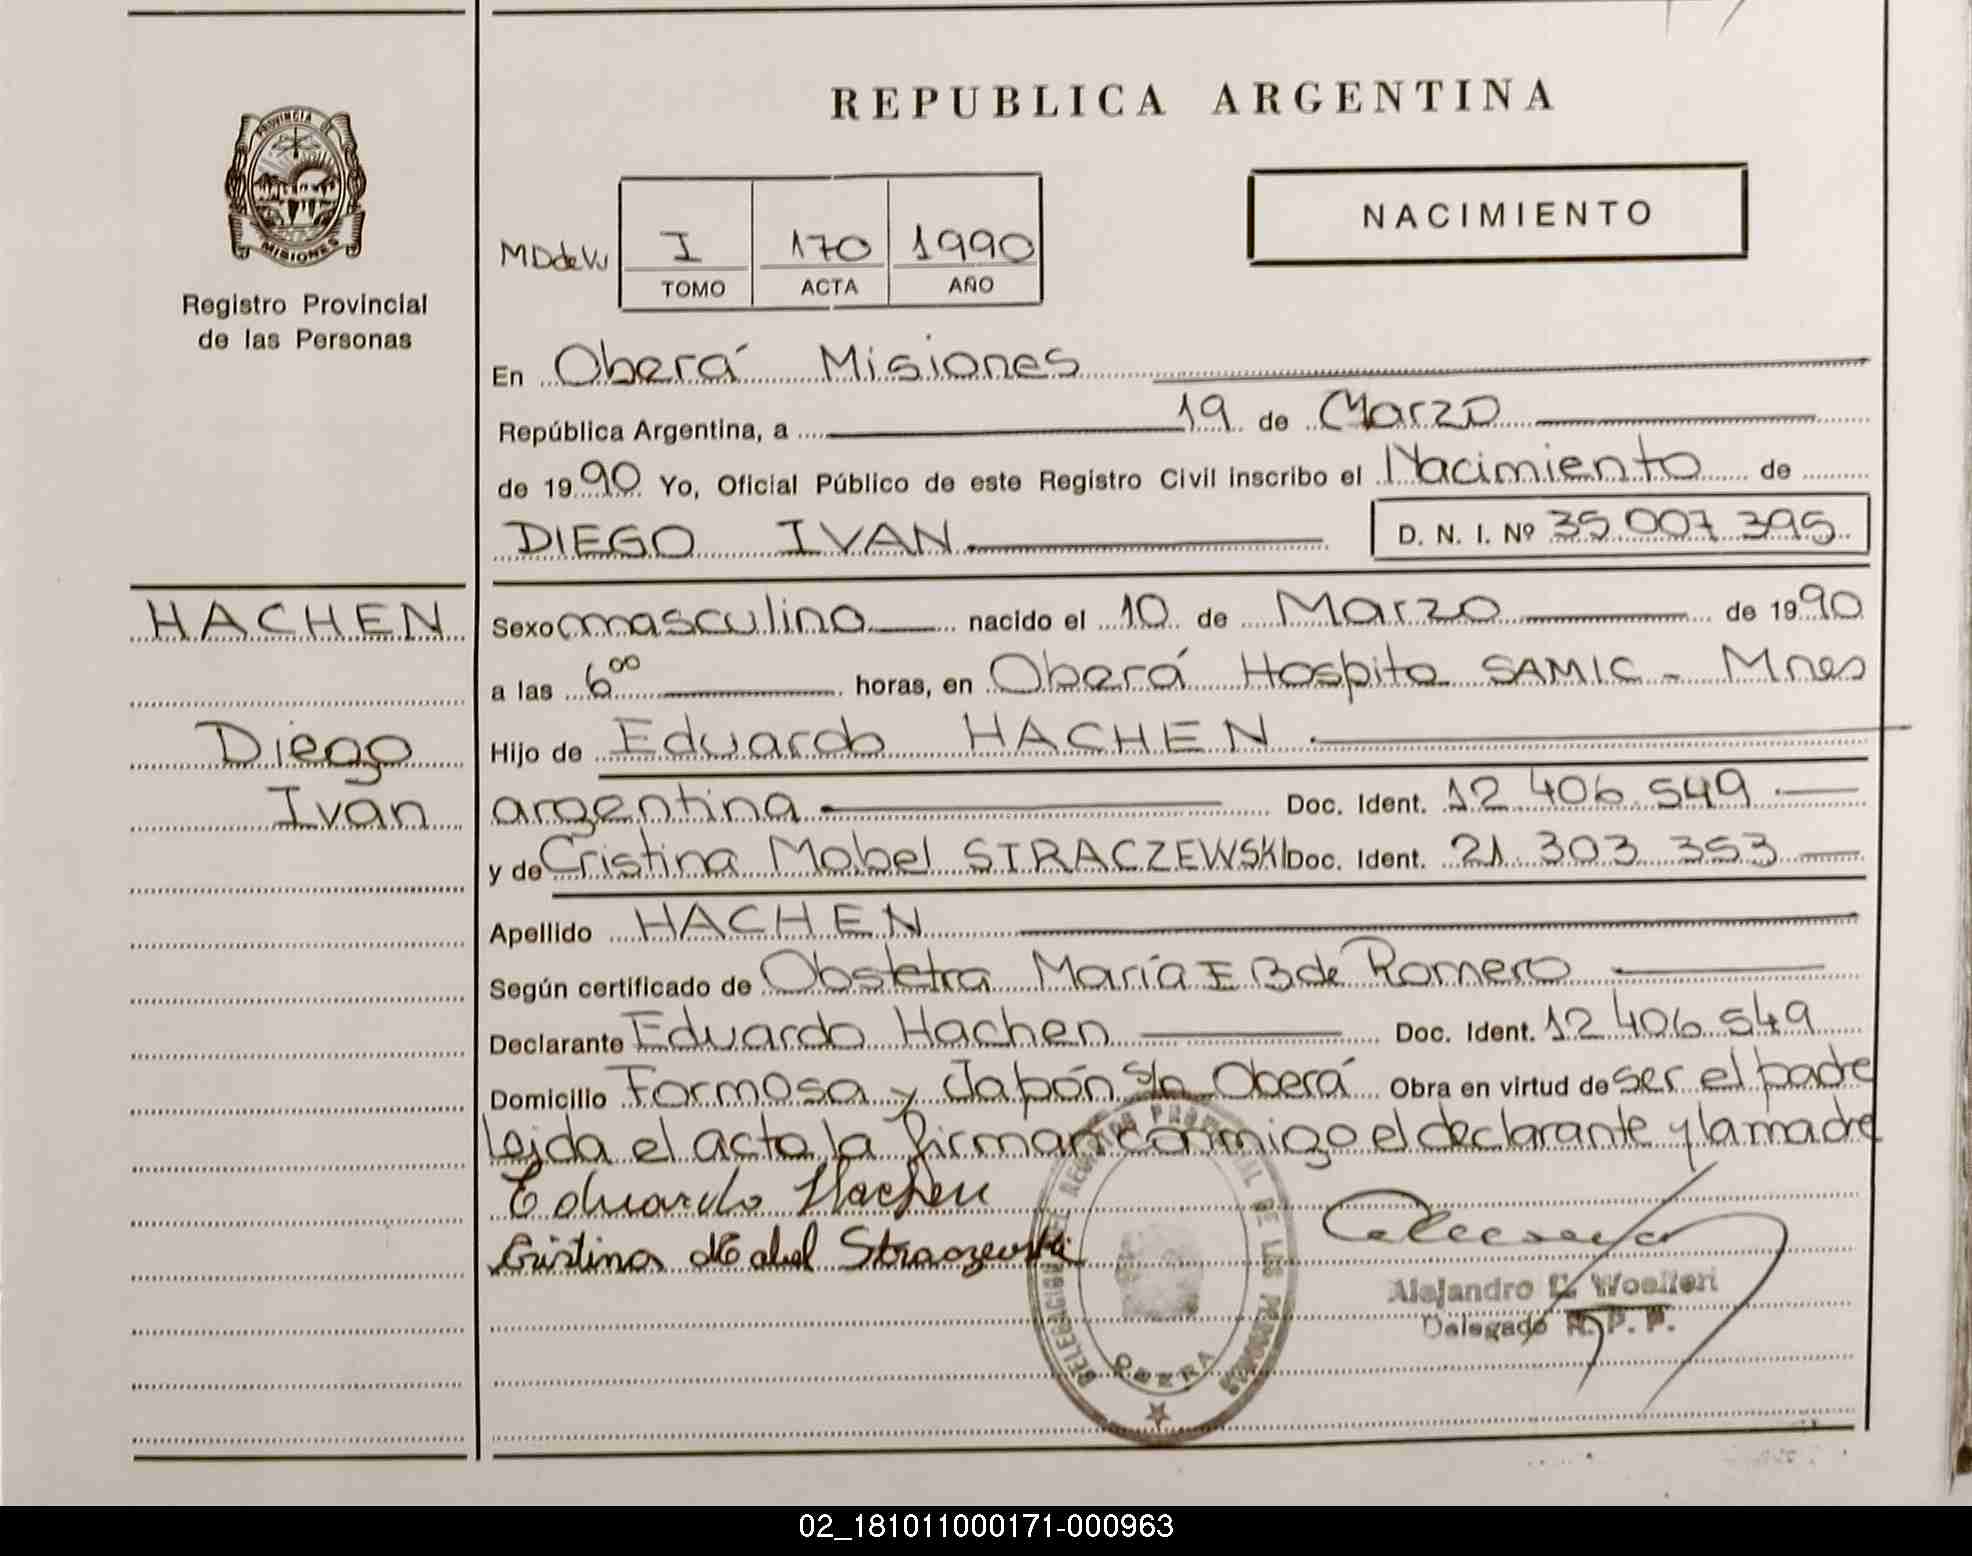 REPUBLICA ARGENTINA
PROVINCIA DE
MISIONES
Registro Provincial
de las Personas
NACIMIENTO
MDdeVu I 170 1990
TOMO ACTA AÑO
En Oberá Misiones
República Argentina, a 19 de Marzo
de 1990 Yo, Oficial Público de este Registro Civil inscribo el Nacimiento de
DIEGO IVAN D. N. I. Nº 35 007 395
HACHEN
Diego
Ivan
Sexo masculino nacido el 10 de Marzo de 1990
a las 6⁰⁰ horas, en Oberá Hospita SAMIC - Mnes
Hijo de Eduardo HACHEN
argentina Doc. Ident. 12 406 549
y de Cristina Mabel STRACZEWSKI Doc. Ident. 21 303 353
Apellido HACHEN
Según certificado de Obstetra María E B de Romero
Declarante Eduardo Hachen Doc. Ident. 12 406 549
Domicilio Formosa y Japón s/n Oberá Obra en virtud de ser el padre
Leida el acta la firman conmigo el declarante y la madre
Eduardo Hachen
Cristina Mabel Straczewski
DELEGACION DEL REGISTRO PROVINCIAL DE LAS PERSONAS
OBERA
Alejandro C. Woelferi
Delegado R. P. P.
02_181011000171-000963